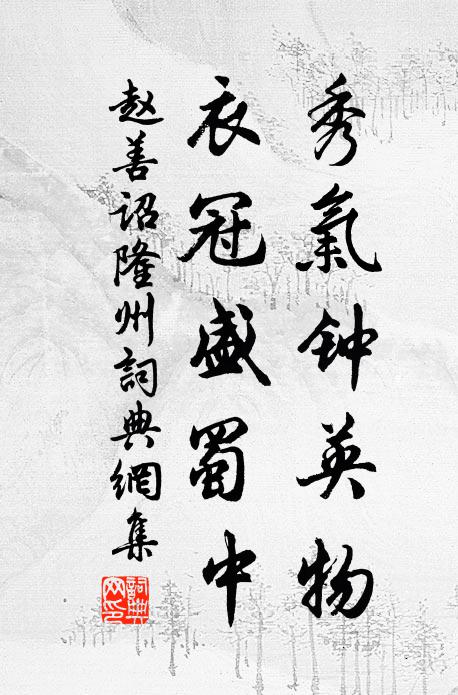 秀氣钟英物
衣冠盛蜀中
赵善诏隆州詞典網集
詞典